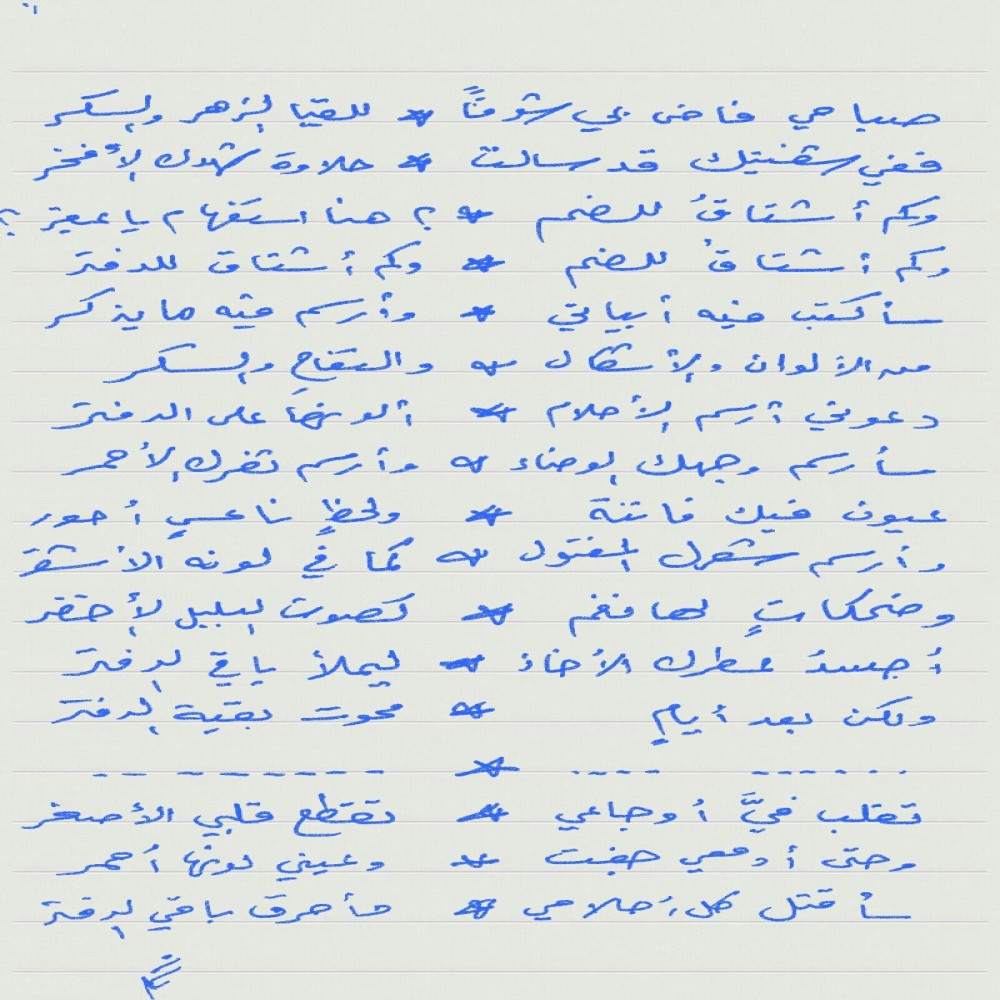 صباحي فاض بي شوقاً * للقيا الزهر والسكر
ففي شفتيك قد سالت * حلاوة شهدك الأفخر
وكم أشتاقُ للضم * ؟ هنا استفهام يا عبقر ؟
وكم أشتاقُ للضم * وكم أشتاق للدفتر
سأكتب فيه أبياتي * وأرسم فيه ما يذكر
من الألوان والأشكال * والتفاح والسكر
دعوني أرسم الأحلام * ألونها على الدفتر
سأرسم وجهك الوضاء * وأرسم ثغرك الأحمر
عيون فيك فاتنة * ولحظٍ ناعسٍ أحور
وأرسم شعرك المفتول * كما في لونه الأشقر
وضحكاتٍ لها نغم * كصوت البلبل الأخضر
أجسدُ عطرك الأخاذ * ليملأ باقي الدفتر
ولكن بعد أيامٍ * محوت بقية الدفتر
...... .... * -------- --
تقلب فيَّ أوجاعي * تقطع قلبي الأصغر
وحتى أدمعي جفت * وعيني لونها أحمر
سأقتل كل أحلامي * مأحرق باقي الدفتر